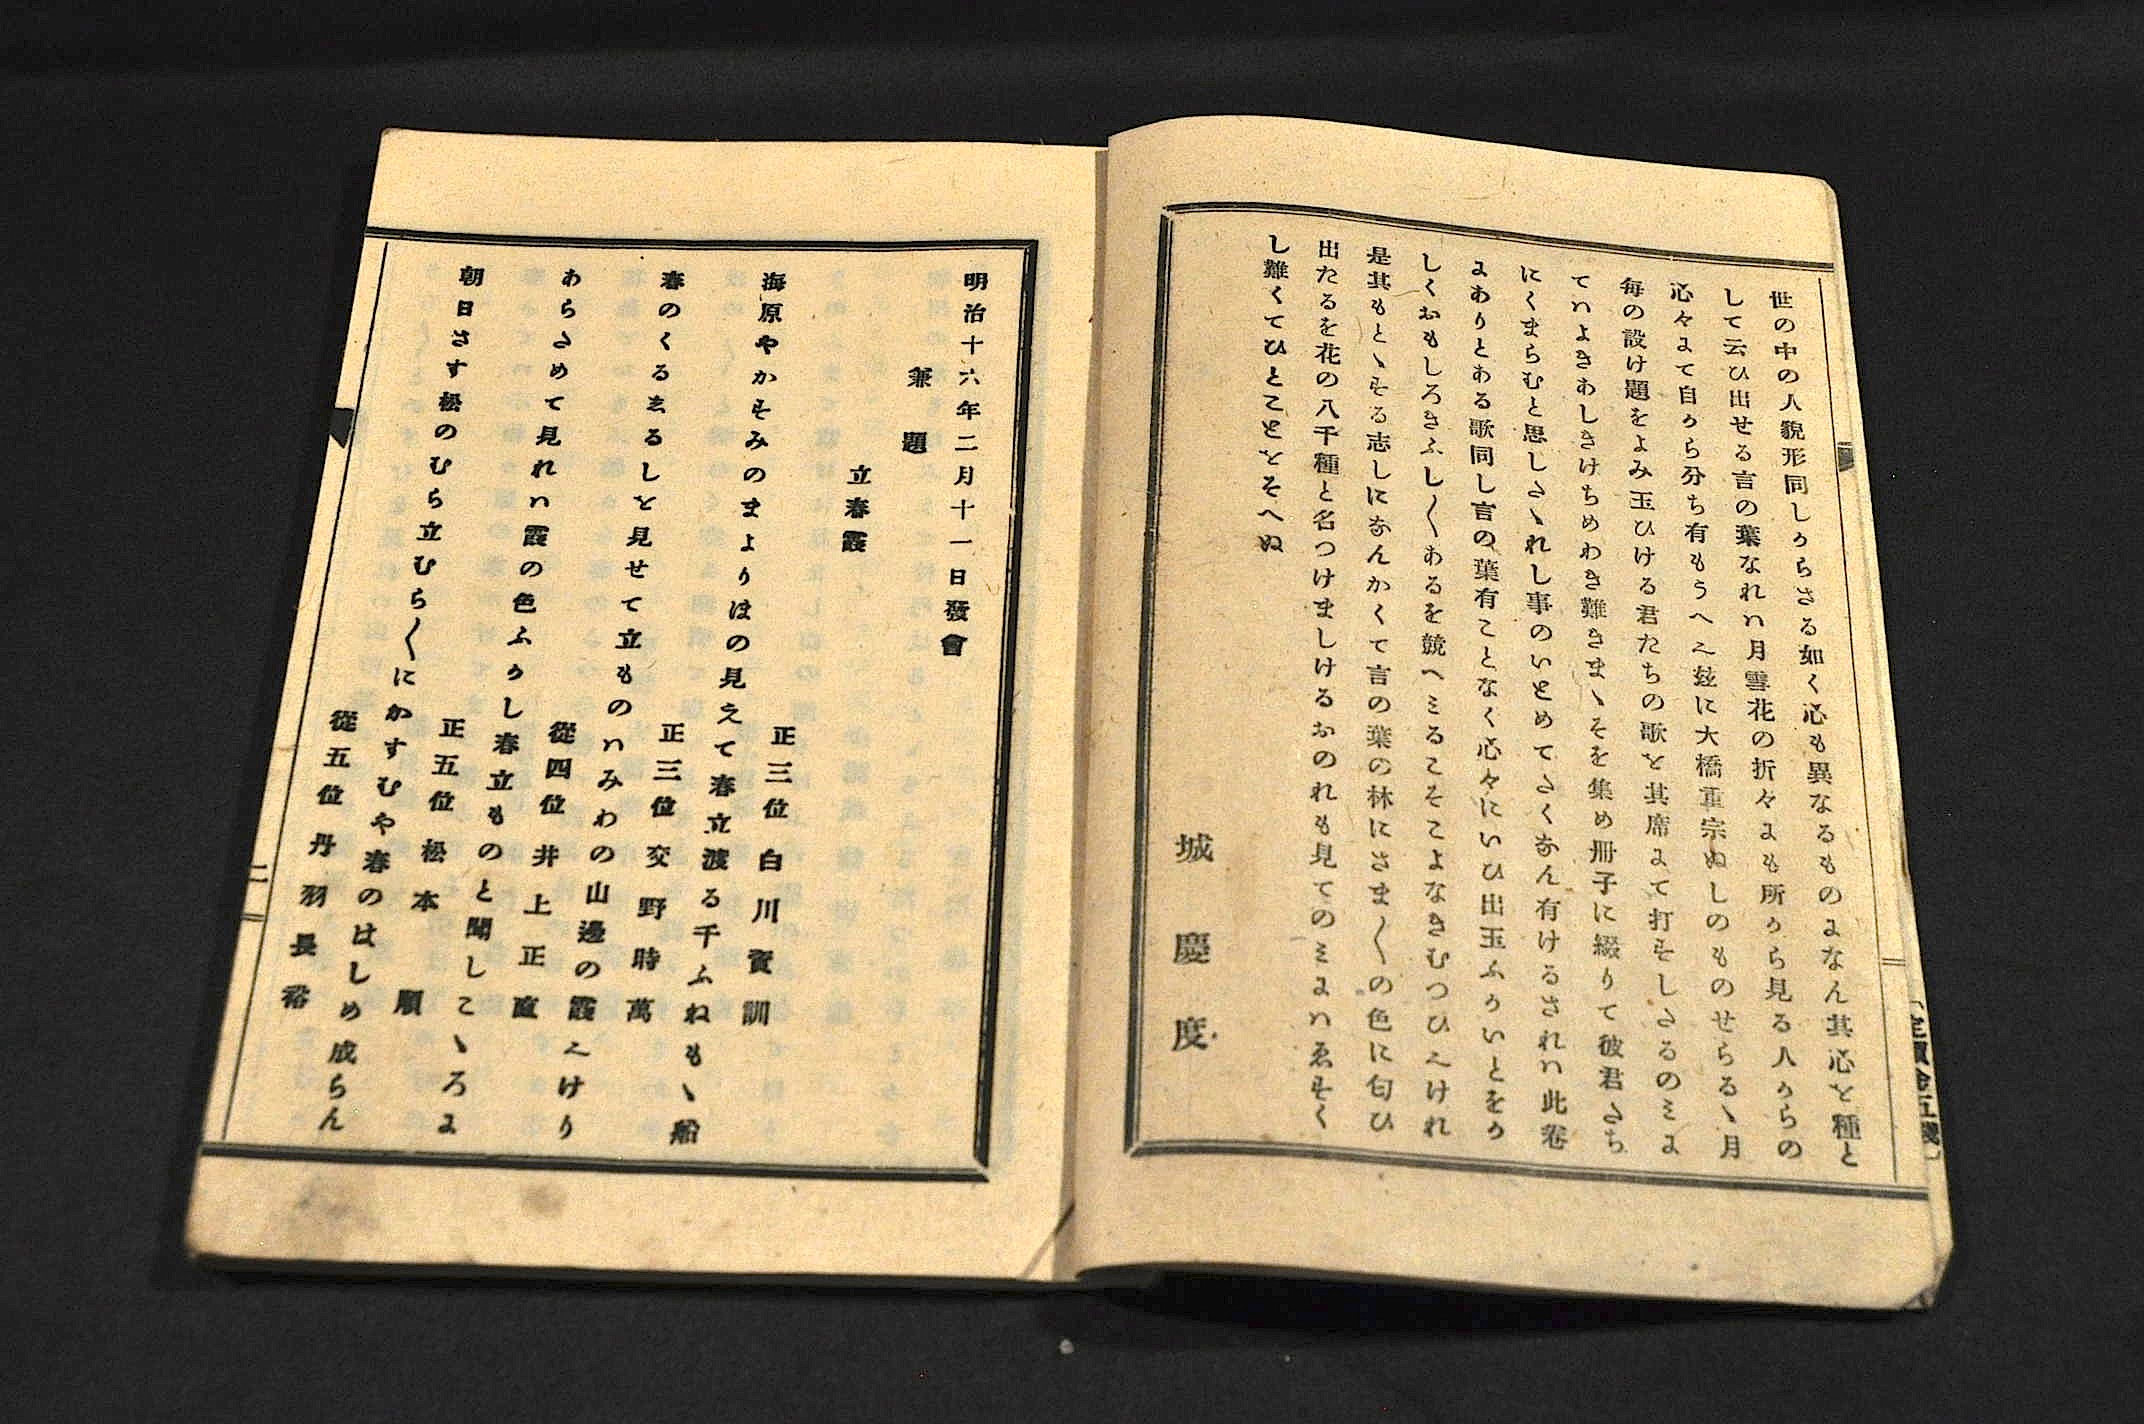 世の中の人貌形同しからさる如く心も異なるものよなん其心を種と
して云ひ出せる言の葉なれハ月雪花の折々よも所から見る人からの
心々よて自から分ち有もうへ之玆に大橋重宗ぬしのものせらるゝ月
毎の設け題をよみ玉ひける君たちの歌を其席よて打そしさるのミよ
てハよきあしきけちめわき難きまゝそを集め冊子に綴りて彼君さち
にくまらむと思しさゝれし事のいとめてさくなん有けるされハ此卷
よありとある歌同し言の葉有ことなく心々にいひ出玉ふかいとをか
しくおもしろきふし〱あるを競へミるこそこよなきむつひ之けれ
是其もとゝする志しになんかくて言の葉の林にさま〱の色に匂ひ
出たるを花の八千種と名つけましけるおのれも見てのミよハゑすく
し難くてひとことをそへぬ
城慶度
明治十六年二月十一日發會
兼題
立春霞
正三位白川資訓
海原やかすみのまよりほの見えて春立渡る千ふねもゝ船
正三位交野時萬
春のくるゑるしを見せて立ものハみわの山邊の霞之けり
從四位井上正直
あらさめて見れハ霞の色ふかし春立ものと聞しこゝろよ
正五位松本順
朝日さす松のむら立むら〱にかすむや春のはしめ成らん
從五位丹羽長裕
二
定價金五錢